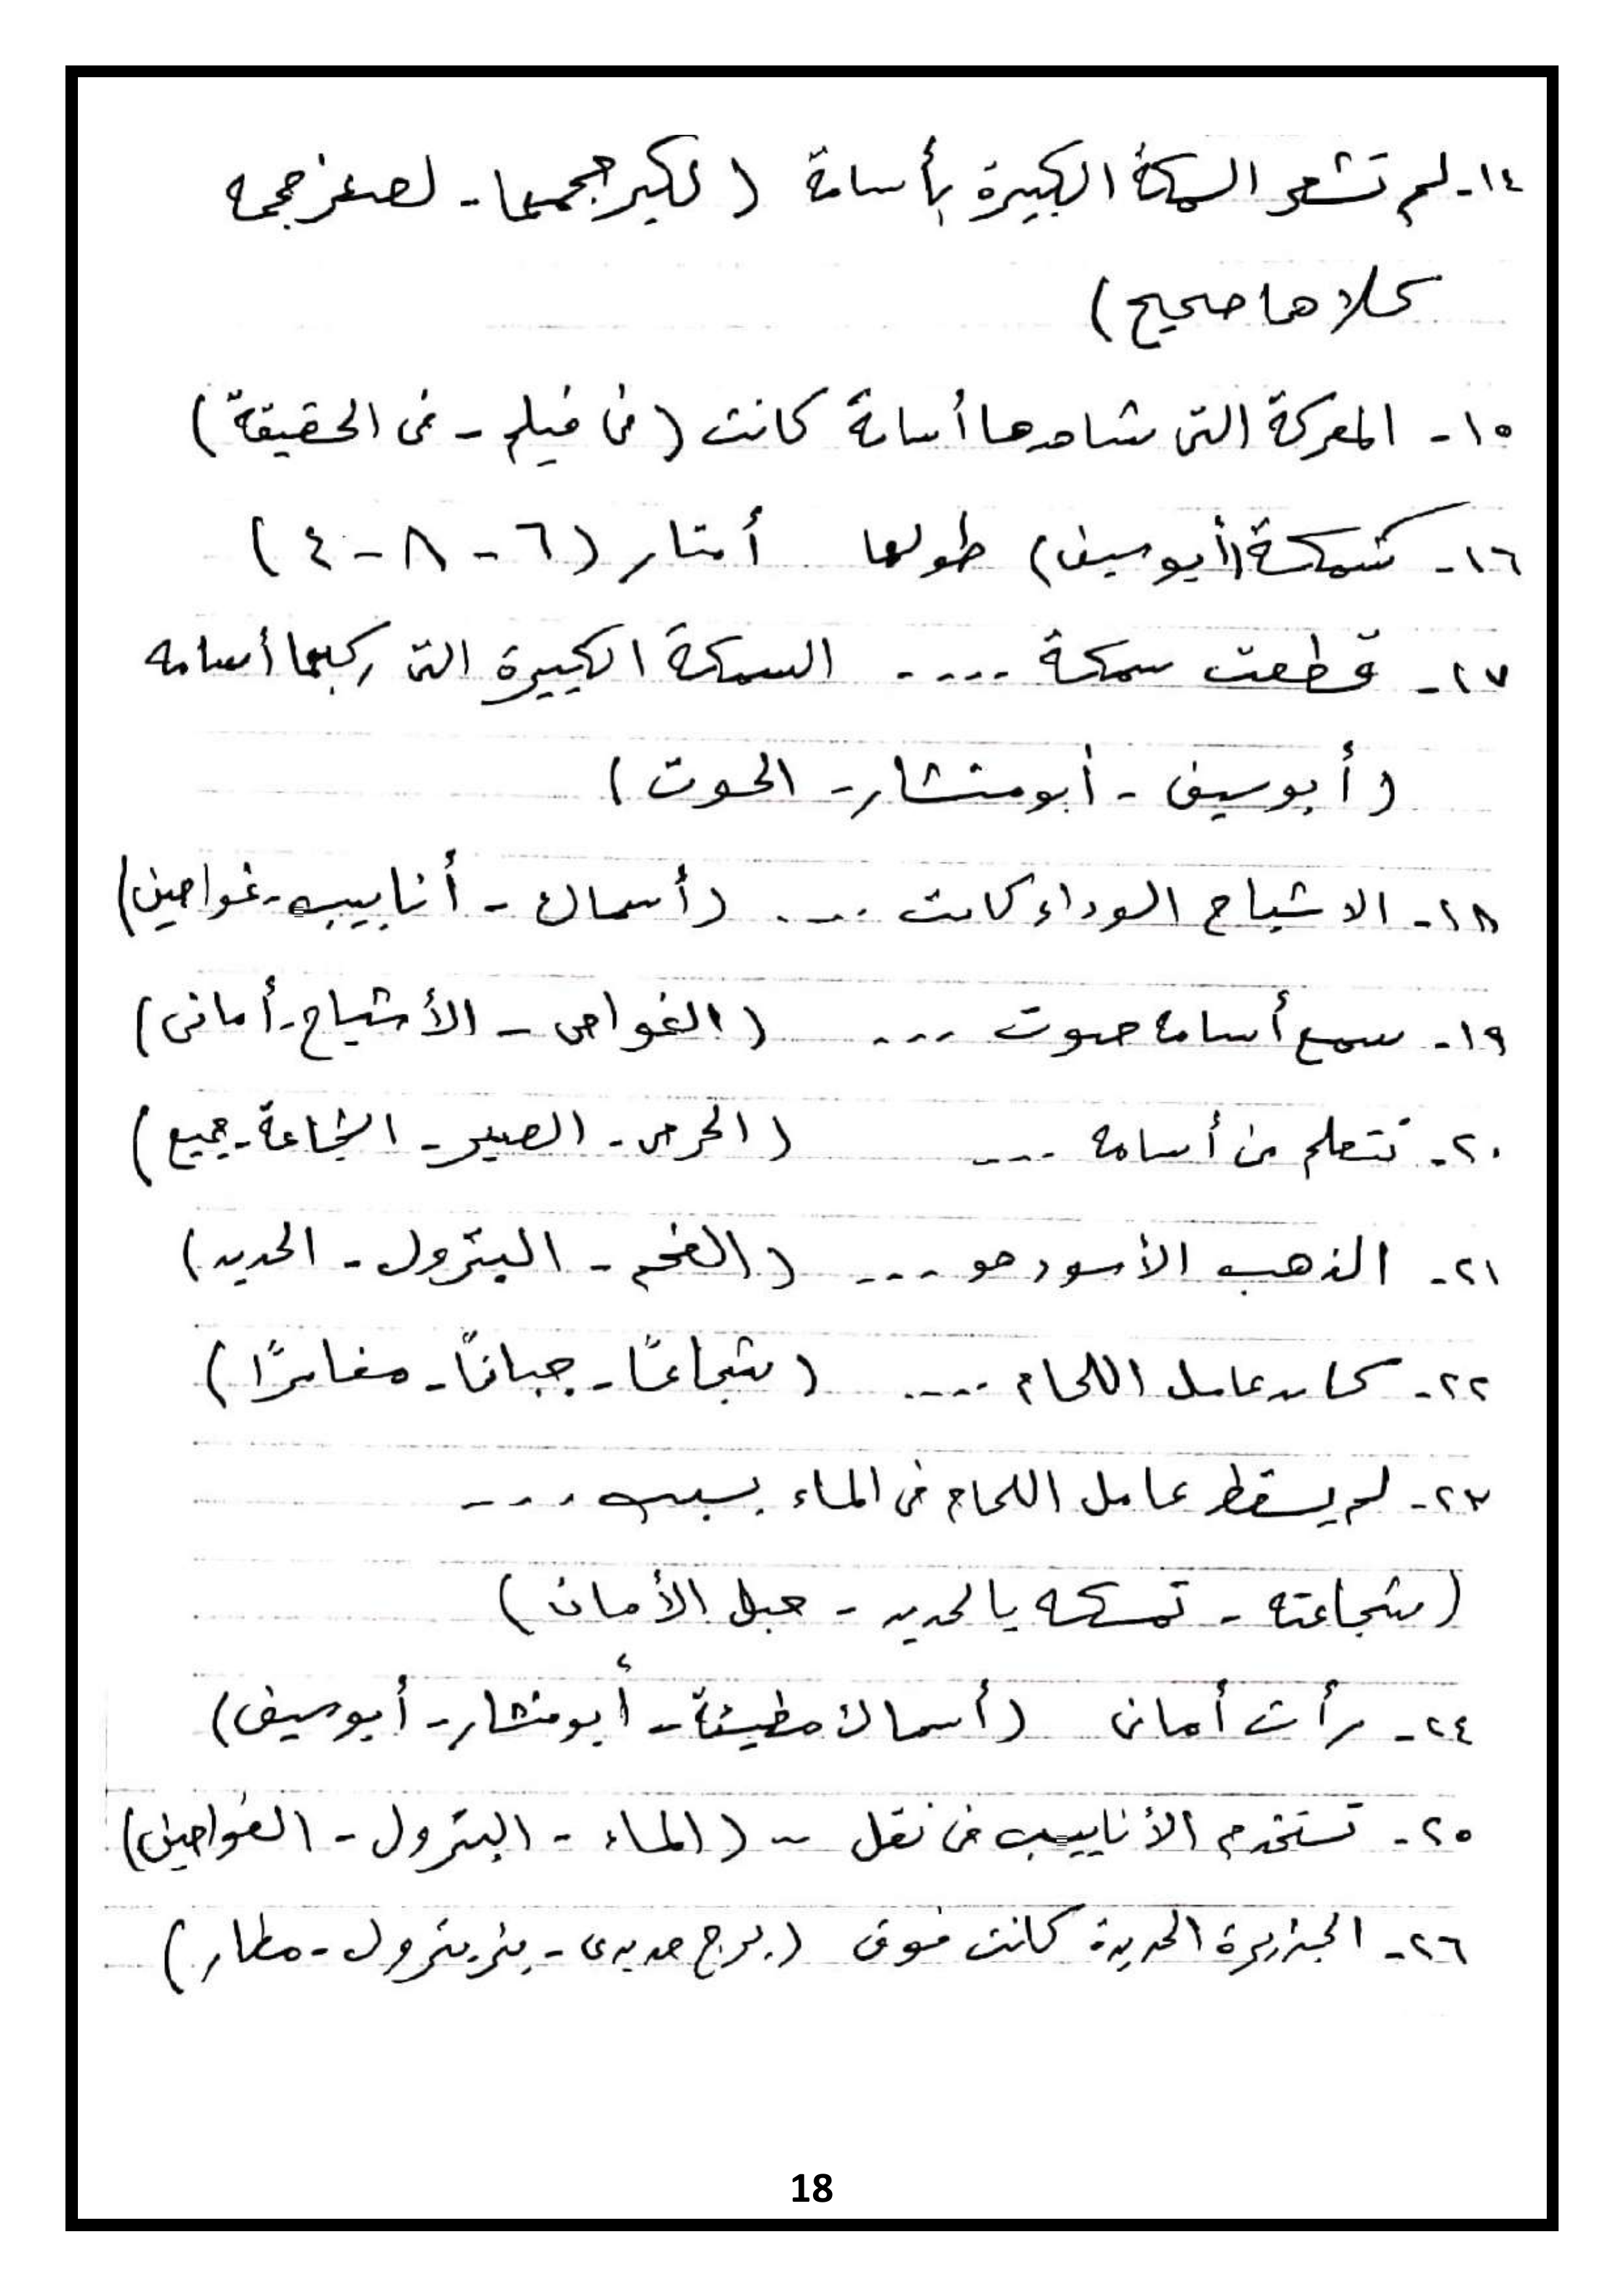 ١٤- لم تشعر السمكة الكبيرة بأسامة ( لكبر حجمها - لصغر حجمه
كلاهما صحيح )
١٥- المعركة التى شاهدها أسامة كانت ( فى فيلم - فى الحقيقة )
١٦- سمكة (أبوسيف) طولها أمتار ( ٦ - ٨ - ٤ )
١٧- قطعت سمكة .... السمكة الكبيرة التى ركبها أسامه
( أبوسيف - أبومنشار - الحوت )
١٨- الاشباح السوداء كانت .... ( أسماك - أنابيب - غواصين )
١٩- سمع أسامه صوت ... ( الغواص - الأشباح - أمانى )
٢٠- نتعلم من أسامه ... ( الحرص - الصبر - الشجاعة - جميع )
٢١- الذهب الأسود هو ... ( الفحم - البترول - الحديد )
٢٢- كان عامل اللحام .... ( شجاعًا - جبانًا - مغامرًا )
٢٣- لم يسقط عامل اللحام فى الماء بسبب ...
( شجاعته - تمسكه بالحديد - حبل الأمان )
٢٤- رأت أمانى ( أسماك مضيئة - أبومنشار - أبوسيف )
٢٥- تستخدم الأنابيب فى نقل .. ( الماء - البترول - الغواصين )
٢٦- الجزيرة الحديدة كانت فوق ( برج حديدى - بئر بترول - مطار )
18